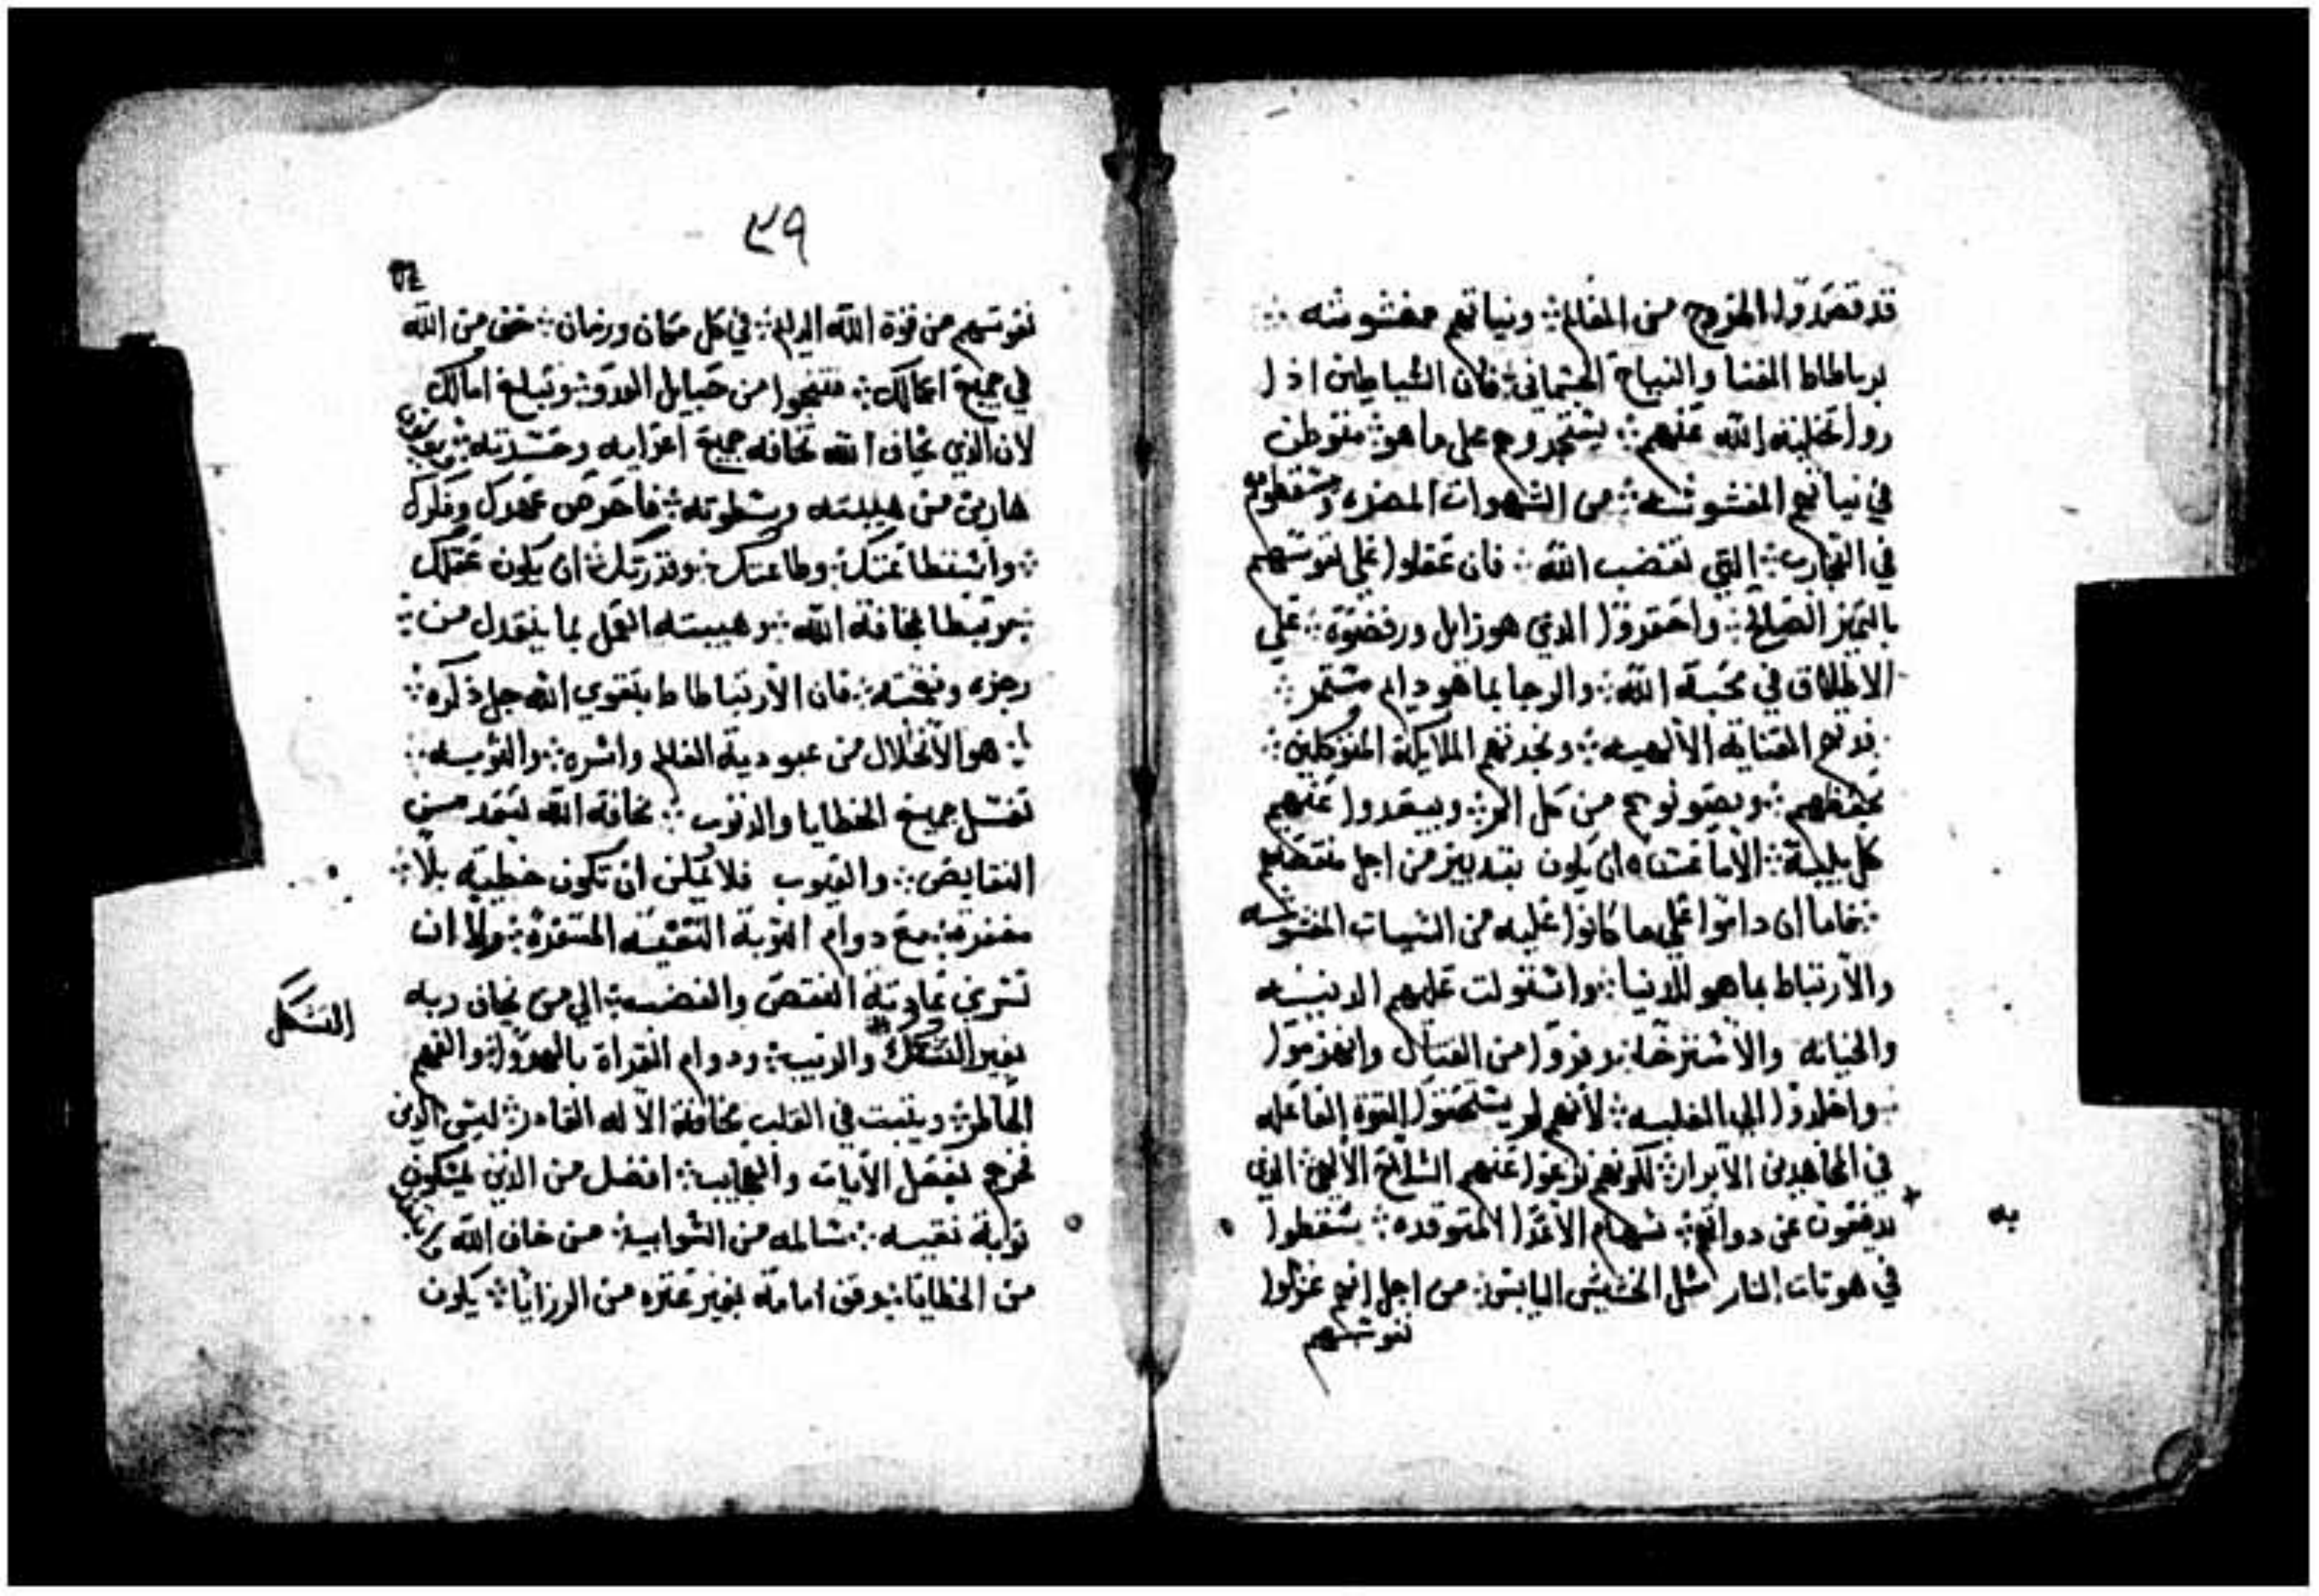 قد قصدوا الخروج من العالم ؞ ونياتهم مغشوشه ؞
لرباطاط الغنا والنياح الجسماني ؞ فان الشياطين اذا
روا تخليه الله عنهم ؞ يستجروهم على ما هو متوطن
في نياتهم المغشوشه ؞ من الشهوات المضره وسقطوهم
في التجارب ؞ التي تغضب الله ؞ فان عقلوا على نفوسهم
بالتميز الصالح ؞ واحتقروا الذي هو زايل ورفضوه ؞ على
الاطلاق في محبة الله ؞ والرجا بما هو دايم مستمر ؞
العناية الالهيه ؞ وتجدتهم الملايكة المتوكلين ؞
بحفظهم ؞ ويصونوهم من كل الم ؞ ويبعدوا عنهم
كل بلية ؞ الا ما عساه ان يكون بتدبير من اجل منفعتهم
؞ فاما ان داموا على ما كانوا عليه من النيات المغشوشه
والارتباط بما هو للدنيا ؞ واستولت عليهم الدنيسه
والخيانه والاسترخا ؞ وفروا من القتال وانهزموا
؞ واخلدوا الى الغلبه ؞ لانهم لم يستحقوا القوة الفاعله
في المجاهدين الابرار ؞ لكونهم نزعوا عنهم السلاح الالهي ؞ الذي
يدفعون به عن دواتهم ؞ سهام الاعدا المتوقده ؞ سقطوا
في هوتات النار مثل الحشيش اليابس ؞ من اجل انهم عزلوا
نفوسهم
٣٩
٣٤
نفوسهم من قوة الله الدايم ؞ في كل مكان وزمان ؞ خف من الله
في جميع اعمالك ؞ فتنجوا من حبايل العدو ؞ وتبلغ امالك
لان الذي يخاف الله تخافه جميع اعدايه وحسدته ؞
هاربين من هيبته وسطوته ؞ فاحرص بجهدك وفكرك
؞ واستطاعتك ؞ وطاعتك ؞ وقدرتك ؞ ان يكون عقلك
؞ مرتبطا بمخافة الله ؞ وهيبته العمل بما ينقدك من ؞
رجزه ونقمته ؞ فان الارتباطاط بتقوي الله جل ذكره ؞
؞ هو الانحلال من عبودية العالم واسره ؞ والتوبه ؞
تغسل جميع الخطايا والذنوب ؞ مخافة الله تنقد من
النقايص ؞ والعيوب فلا يمكن ان تكون خطيه بلا ؞
مغفرة ؞ مع دوام التوبة النقيه المستمره ؞ ولا ان
تسري عادية النقص والغضب ؞ الى من يخاف ربه
بغير التشكك والريب ؞ ودوام القراة بالهدو ؞ والفهم
الخاطر ؞ ويثبت في القلب مخافة الاله القادر ؞ ليس الذين
تخرج لفعل الايات والعجايب ؞ افضل من الذين يمسكون
توبة نقيه ؞ سالمه من الشوايب ؞ من خاف الله
من الخطايا ؞ وقف امامه بغير عثره من الرزايا ؞ يكون
التشكك
به